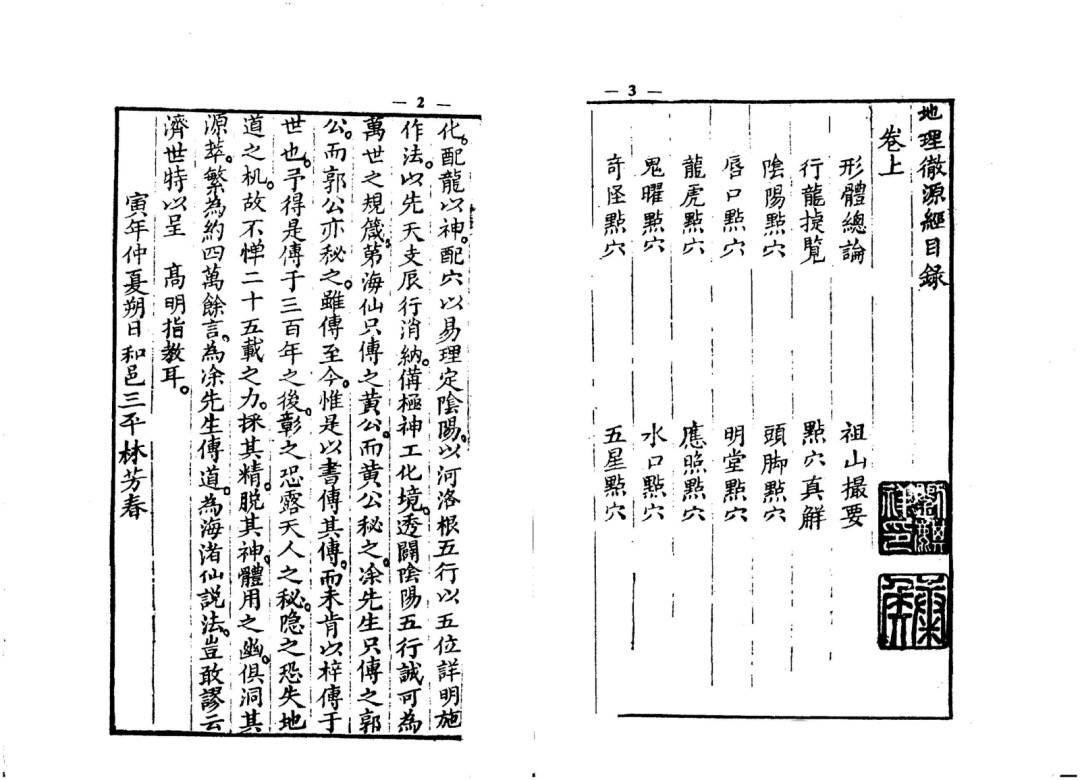 — 2 —
化。配龍以神。配穴以易理定陰陽。以河洛根五行以五位詳明施
作法。以先天支辰行消納。備極神工化境。透闢陰陽五行誠可為
萬世之規箴。第海仙只傳之黃公。而黃公秘之。凃先生只傳之郭
公。而郭公亦秘之。雖傳至今。惟是以書傳其傳。而未肯以梓傳于
世也。予得是傳于三百年之後。彰之恐露天人之秘。隐之恐失地
道之机。故不惮二十五載之力。採其精。脱其神。體用之幽。俱洞其
源。萃繁為約四萬餘言。為凃先生傳道。為海渚仙説法。豈敢謬云
濟世特以呈 髙明指教耳。
寅年仲夏朔日和邑三平林芳春
— 3 —
地理徹源經目錄
卷上
形體總論 祖山撮要
行龍㨗覧 點穴真解
陰陽點穴 頭脚點穴
唇口點穴 明堂點穴
龍虎點穴 應照點穴
鬼曜點穴 水口點穴
奇怪點穴 五星點穴